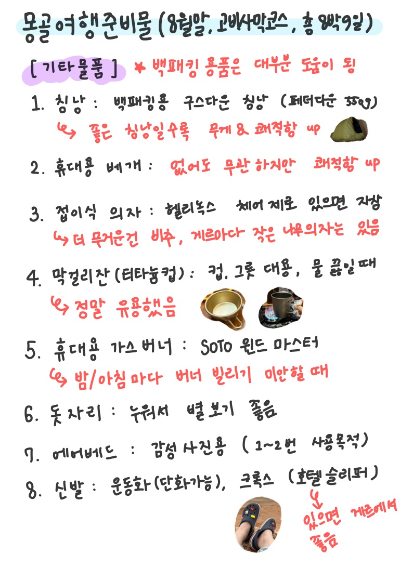 몽골여행준비물 (8월말, 고비사막코스, 총 8박9일)
[기타물품] * 백패킹 용품은 대부분 도움이 됨
1. 침낭 : 백패킹용 구스다운 침낭 (페더다운 350g)
↳ 좋은 침낭일수록 무게 & 쾌적함 up
2. 휴대용 베개 : 없어도 무관하지만 쾌적함 up
3. 접이식 의자 : 헬리녹스 체어제로 있으면 지참
↳ 더 무거운건 비추, 게르마다 작은 나무의자는 있음
4. 막걸리잔 (티타늄컵) : 컵, 그릇 대용, 물 끓일때
↳ 정말 유용했음
5. 휴대용 가스버너 : SOTO 윈드 마스터
↳ 밤/아침마다 버너 빌리기 미안할 때
6. 돗자리 : 누워서 별보기 좋음
7. 에어베드 : 감성 사진용 (1~2번 사용목적)
8. 신발 : 운동화(단화가능), 크록스 (호텔 슬리퍼)
↳ 있으면 게르에서
좋음